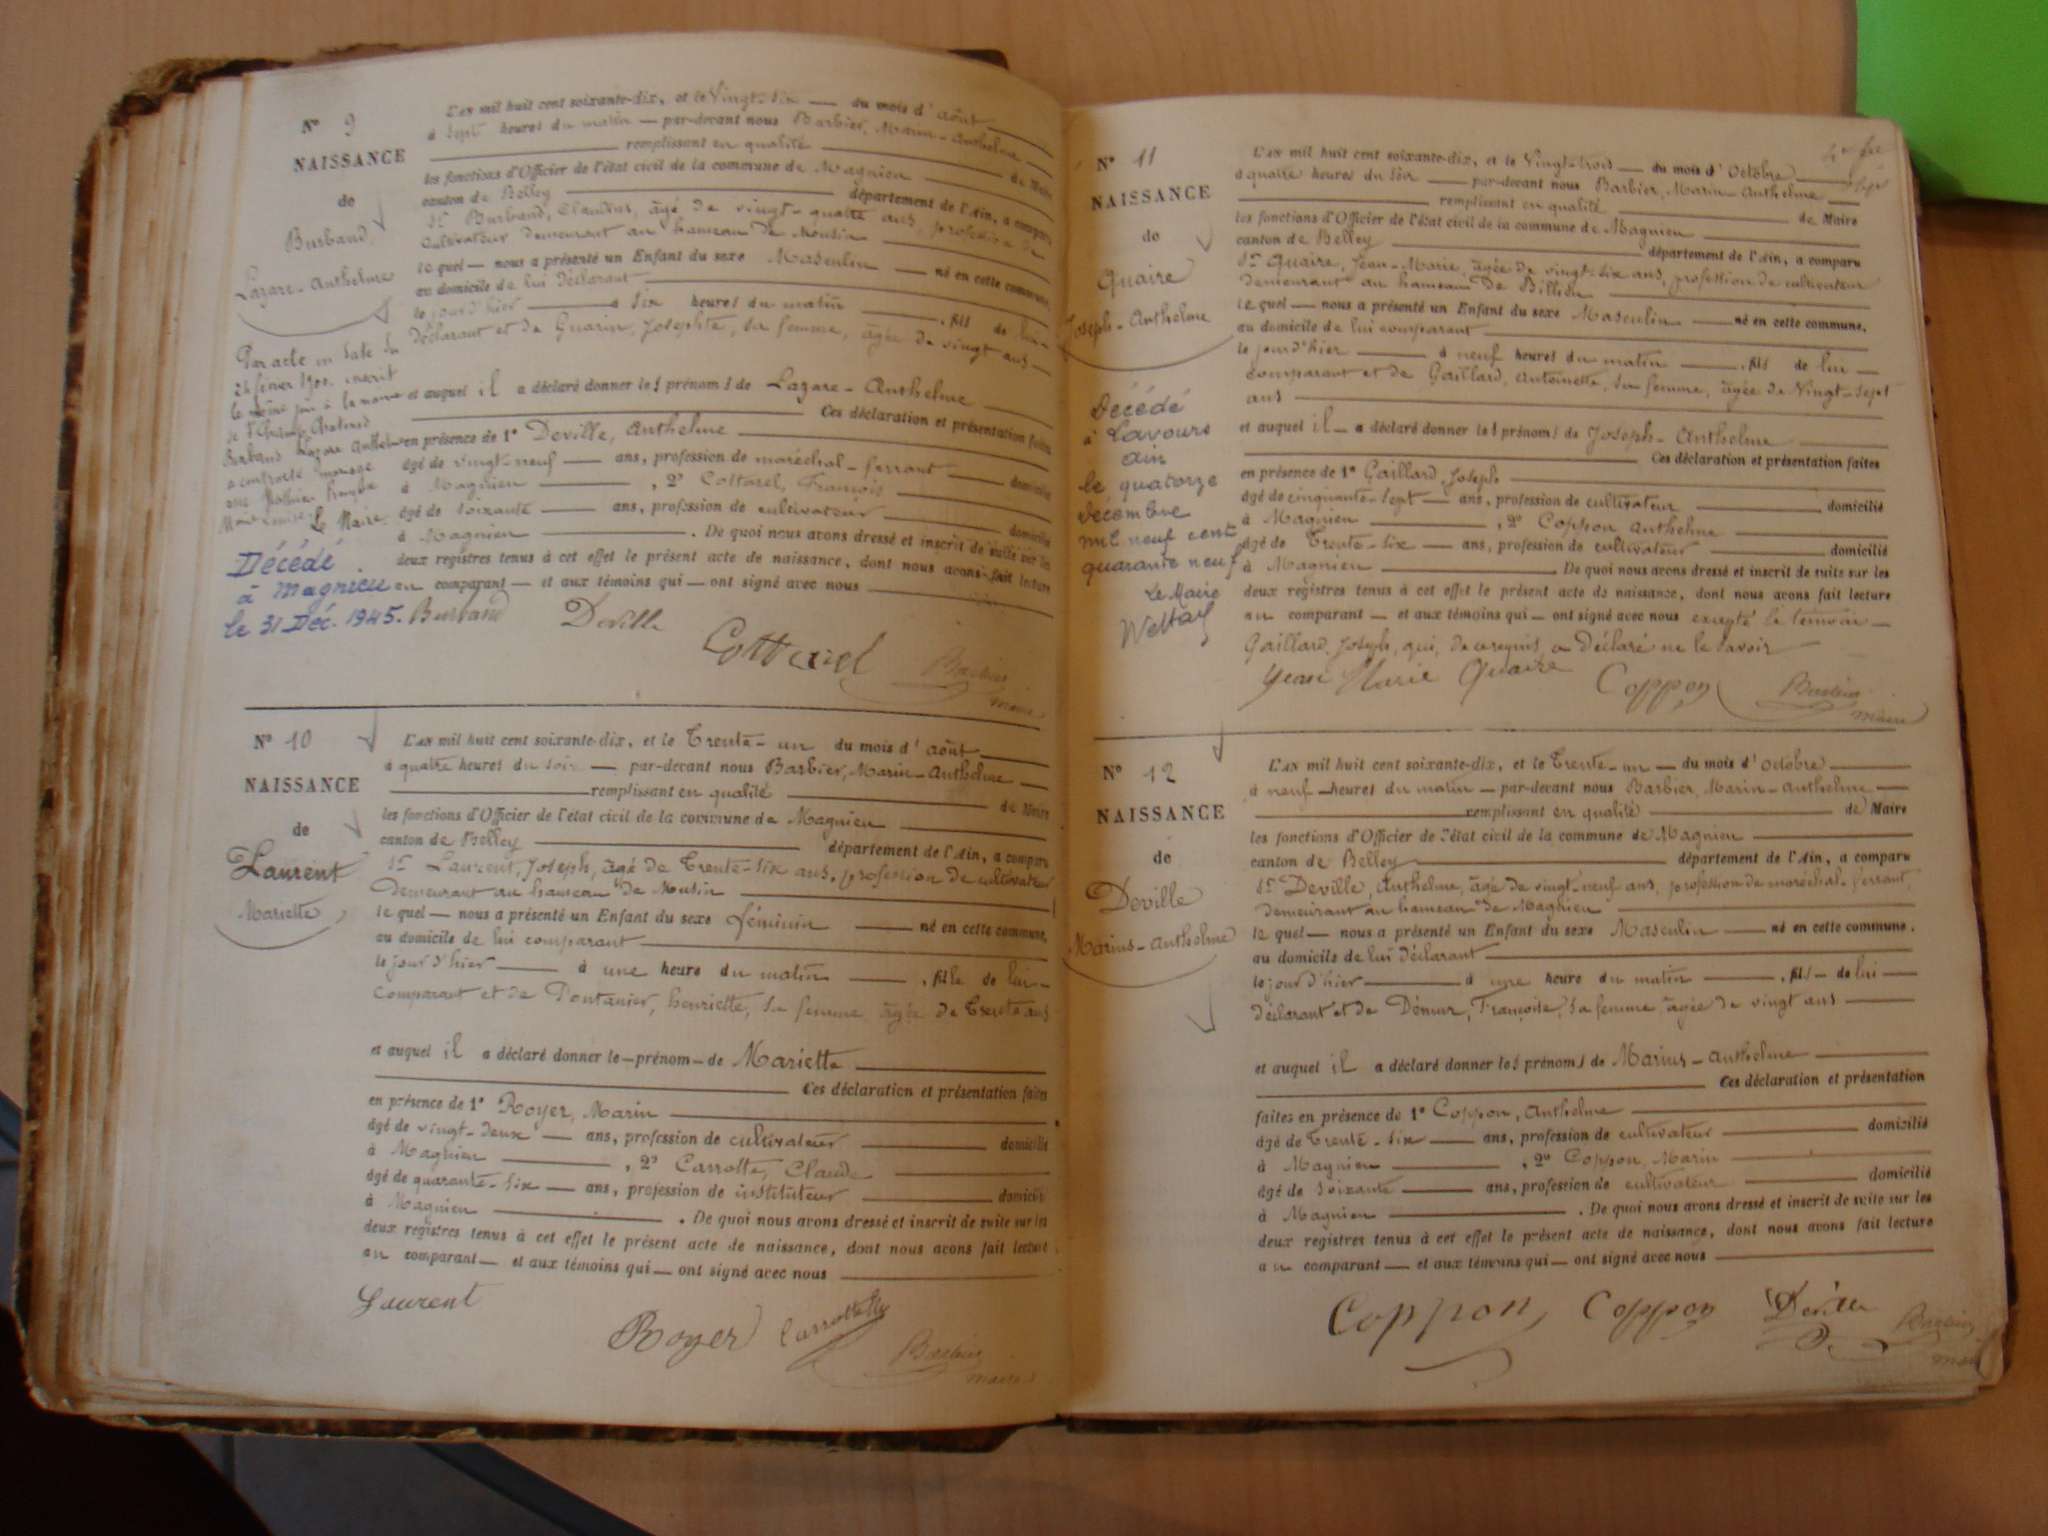 N° 9
NAISSANCE
de
Burband,
Lazare-Anthelme
Par acte en date du
le même jour à la mairie
Burband Lazare Anthelme
a contracté mariage
Le Maire.
Décédé
à Magnieu
le 31 Déc. 1945.
L'AN mil huit cent soixante-dix, et le Vingt-six du mois d'août
à sept heures du matin par-devant nous Barbier, Marin-Anthelme
remplissant en qualité de Maire
les fonctions d'Officier de l'état civil de la commune de Magnieu
canton de Belley département de l'Ain, a comparu
Sr Burband, Claudius, âgé de vingt-quatre ans, profession de
cultivateur demeurant au hameau de Mousin
lequel nous a présenté un Enfant du sexe Masculin né en cette commune
au domicile de lui déclarant
le jour d'hier à six heures du matin, fils de lui
déclarant et de Guarin, Josephte, sa femme, âgée de vingt ans
et auquel il a déclaré donner les prénoms de Lazare-Anthelme
Ces déclaration et présentation faites
en présence de 1° Deville, Anthelme
âgé de vingt-neuf ans, profession de maréchal-ferrant domicilié
à Magnieu, 2° Cottarel, François
âgé de soixante ans, profession de cultivateur domicilié
à Magnieu. De quoi nous avons dressé et inscrit de suite sur les
deux registres tenus à cet effet le présent acte de naissance, dont nous avons fait lecture
au comparant et aux témoins qui ont signé avec nous
Burband Deville
Cottarel Barbier
maire
N° 10
NAISSANCE
de
Laurent
Mariette
L'AN mil huit cent soixante-dix, et le Trente-un du mois d'août
à quatre heures du soir par-devant nous Barbier, Marin-Anthelme
remplissant en qualité de Maire
les fonctions d'Officier de l'état civil de la commune de Magnieu
canton de Belley département de l'Ain, a comparu
Sr Laurent, Joseph, âgé de Trente-six ans, profession de cultivateur
demeurant au hameau de Mousin
lequel nous a présenté un Enfant du sexe féminin né en cette commune,
au domicile de lui comparant
le jour d'hier à une heure du matin, fille de lui
comparant et de Pontanier, henriette, sa femme âgée de Trente ans
et auquel il a déclaré donner le prénom de Mariette
Ces déclaration et présentation faites
en présence de 1° Royer, Marin
âgé de vingt-deux ans, profession de cultivateur domicilié
à Magnieu, 2° Carrotte, Claude
âgé de quarante-six ans, profession de instituteur domicilié
à Magnieu. De quoi nous avons dressé et inscrit de suite sur les
deux registres tenus à cet effet le présent acte de naissance, dont nous avons fait lecture
au comparant et aux témoins qui ont signé avec nous
Laurent
Royer Barbier
maire
N° 11
NAISSANCE
de
Quaire
Joseph-Anthelme
Décédé
à Lavours
ain
le quatorze
décembre
mil neuf cent
quarante neuf
Le Maire
L'AN mil huit cent soixante-dix, et le Vingt-trois du mois d'Octobre
à quatre heures du soir par-devant nous Barbier, Marin-Anthelme
remplissant en qualité de Maire
les fonctions d'Officier de l'état civil de la commune de Magnieu
canton de Belley département de l'Ain, a comparu
Sr Quaire, Jean-Marie, âgée de vingt-six ans, profession de cultivateur
demeurant au hameau de Billieu
lequel nous a présenté un Enfant du sexe Masculin né en cette commune.
au domicile de lui comparant
le jour d'hier à neuf heures du matin, fils de lui
comparant et de Gaillard, Antoinette, sa femme, âgée de Vingt-sept
ans
et auquel il a déclaré donner les prénoms de Joseph-Anthelme
Ces déclaration et présentation faites
en présence de 1° Gaillard, Joseph
âgé de cinquante-sept ans, profession de cultivateur domicilié
à Magnieu, 2° Coppon Anthelme
âgé de Trente-six ans, profession de cultivateur domicilié
à Magnieu De quoi nous avons dressé et inscrit de suite sur les
deux registres tenus à cet effet le présent acte de naissance, dont nous avons fait lecture
au comparant et aux témoins qui ont signé avec nous excepté le témoin
Gaillard, Joseph, qui, de ce requis, a déclaré ne le savoir
Jean Marie Quaire Coppon Barbier
maire
N° 12
NAISSANCE
de
Deville
Marius-Anthelme
L'AN mil huit cent soixante-dix, et le Trente-un du mois d'Octobre
à neuf heures du matin par-devant nous Barbier, Marin-Anthelme
remplissant en qualité de Maire
les fonctions d'Officier de l'état civil de la commune de Magnieu
canton de Belley département de l'Ain, a comparu
Sr Deville, Anthelme, âgé de vingt-neuf ans, profession de maréchal-ferrant,
demeurant au hameau de Magnieu
lequel nous a présenté un Enfant du sexe Masculin né en cette commune.
au domicile de lui déclarant
le jour d'hier à une heure du matin, fils de lui
déclarant et de Démur, Françoise, sa femme, âgée de vingt ans
et auquel il a déclaré donner les prénoms de Marius-Anthelme
Ces déclaration et présentation
faites en présence de 1° Coppon, Anthelme
âgé de Trente-six ans, profession de cultivateur domicilié
à Magnieu, 2° Coppon, Marin
âgé de soixante ans, profession de cultivateur domicilié
à Magnieu. De quoi nous avons dressé et inscrit de suite sur les
deux registres tenus à cet effet le présent acte de naissance, dont nous avons fait lecture
au comparant et aux témoins qui ont signé avec nous
Coppon, Coppon Deville Barbier
maire